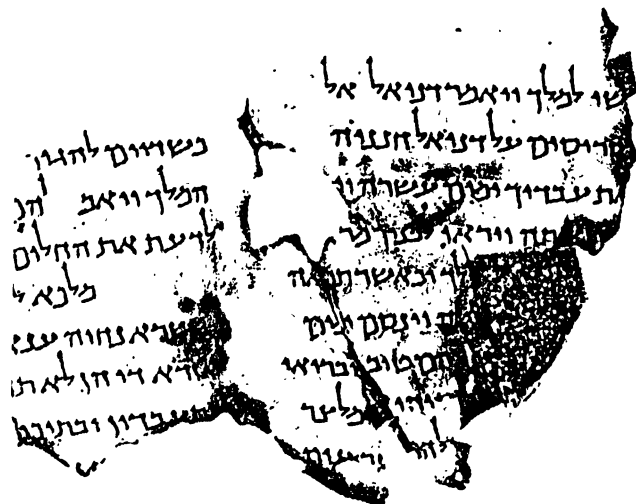 שו למלך ויאמר דניאל אל
סריסים על דניאל חנניה
ת עבדיך ימים עשרה וי
תה ויראו
לך וכאשר תראה
וינסם ימים
טוב ובריאי
המלצר
להם
כשדיים להגיד
המלך ויאמ להן
לדעת את החלום
מלכא ל
פשרא נחוה ענא
זדא די הן לא
תעבדון ובתיכן